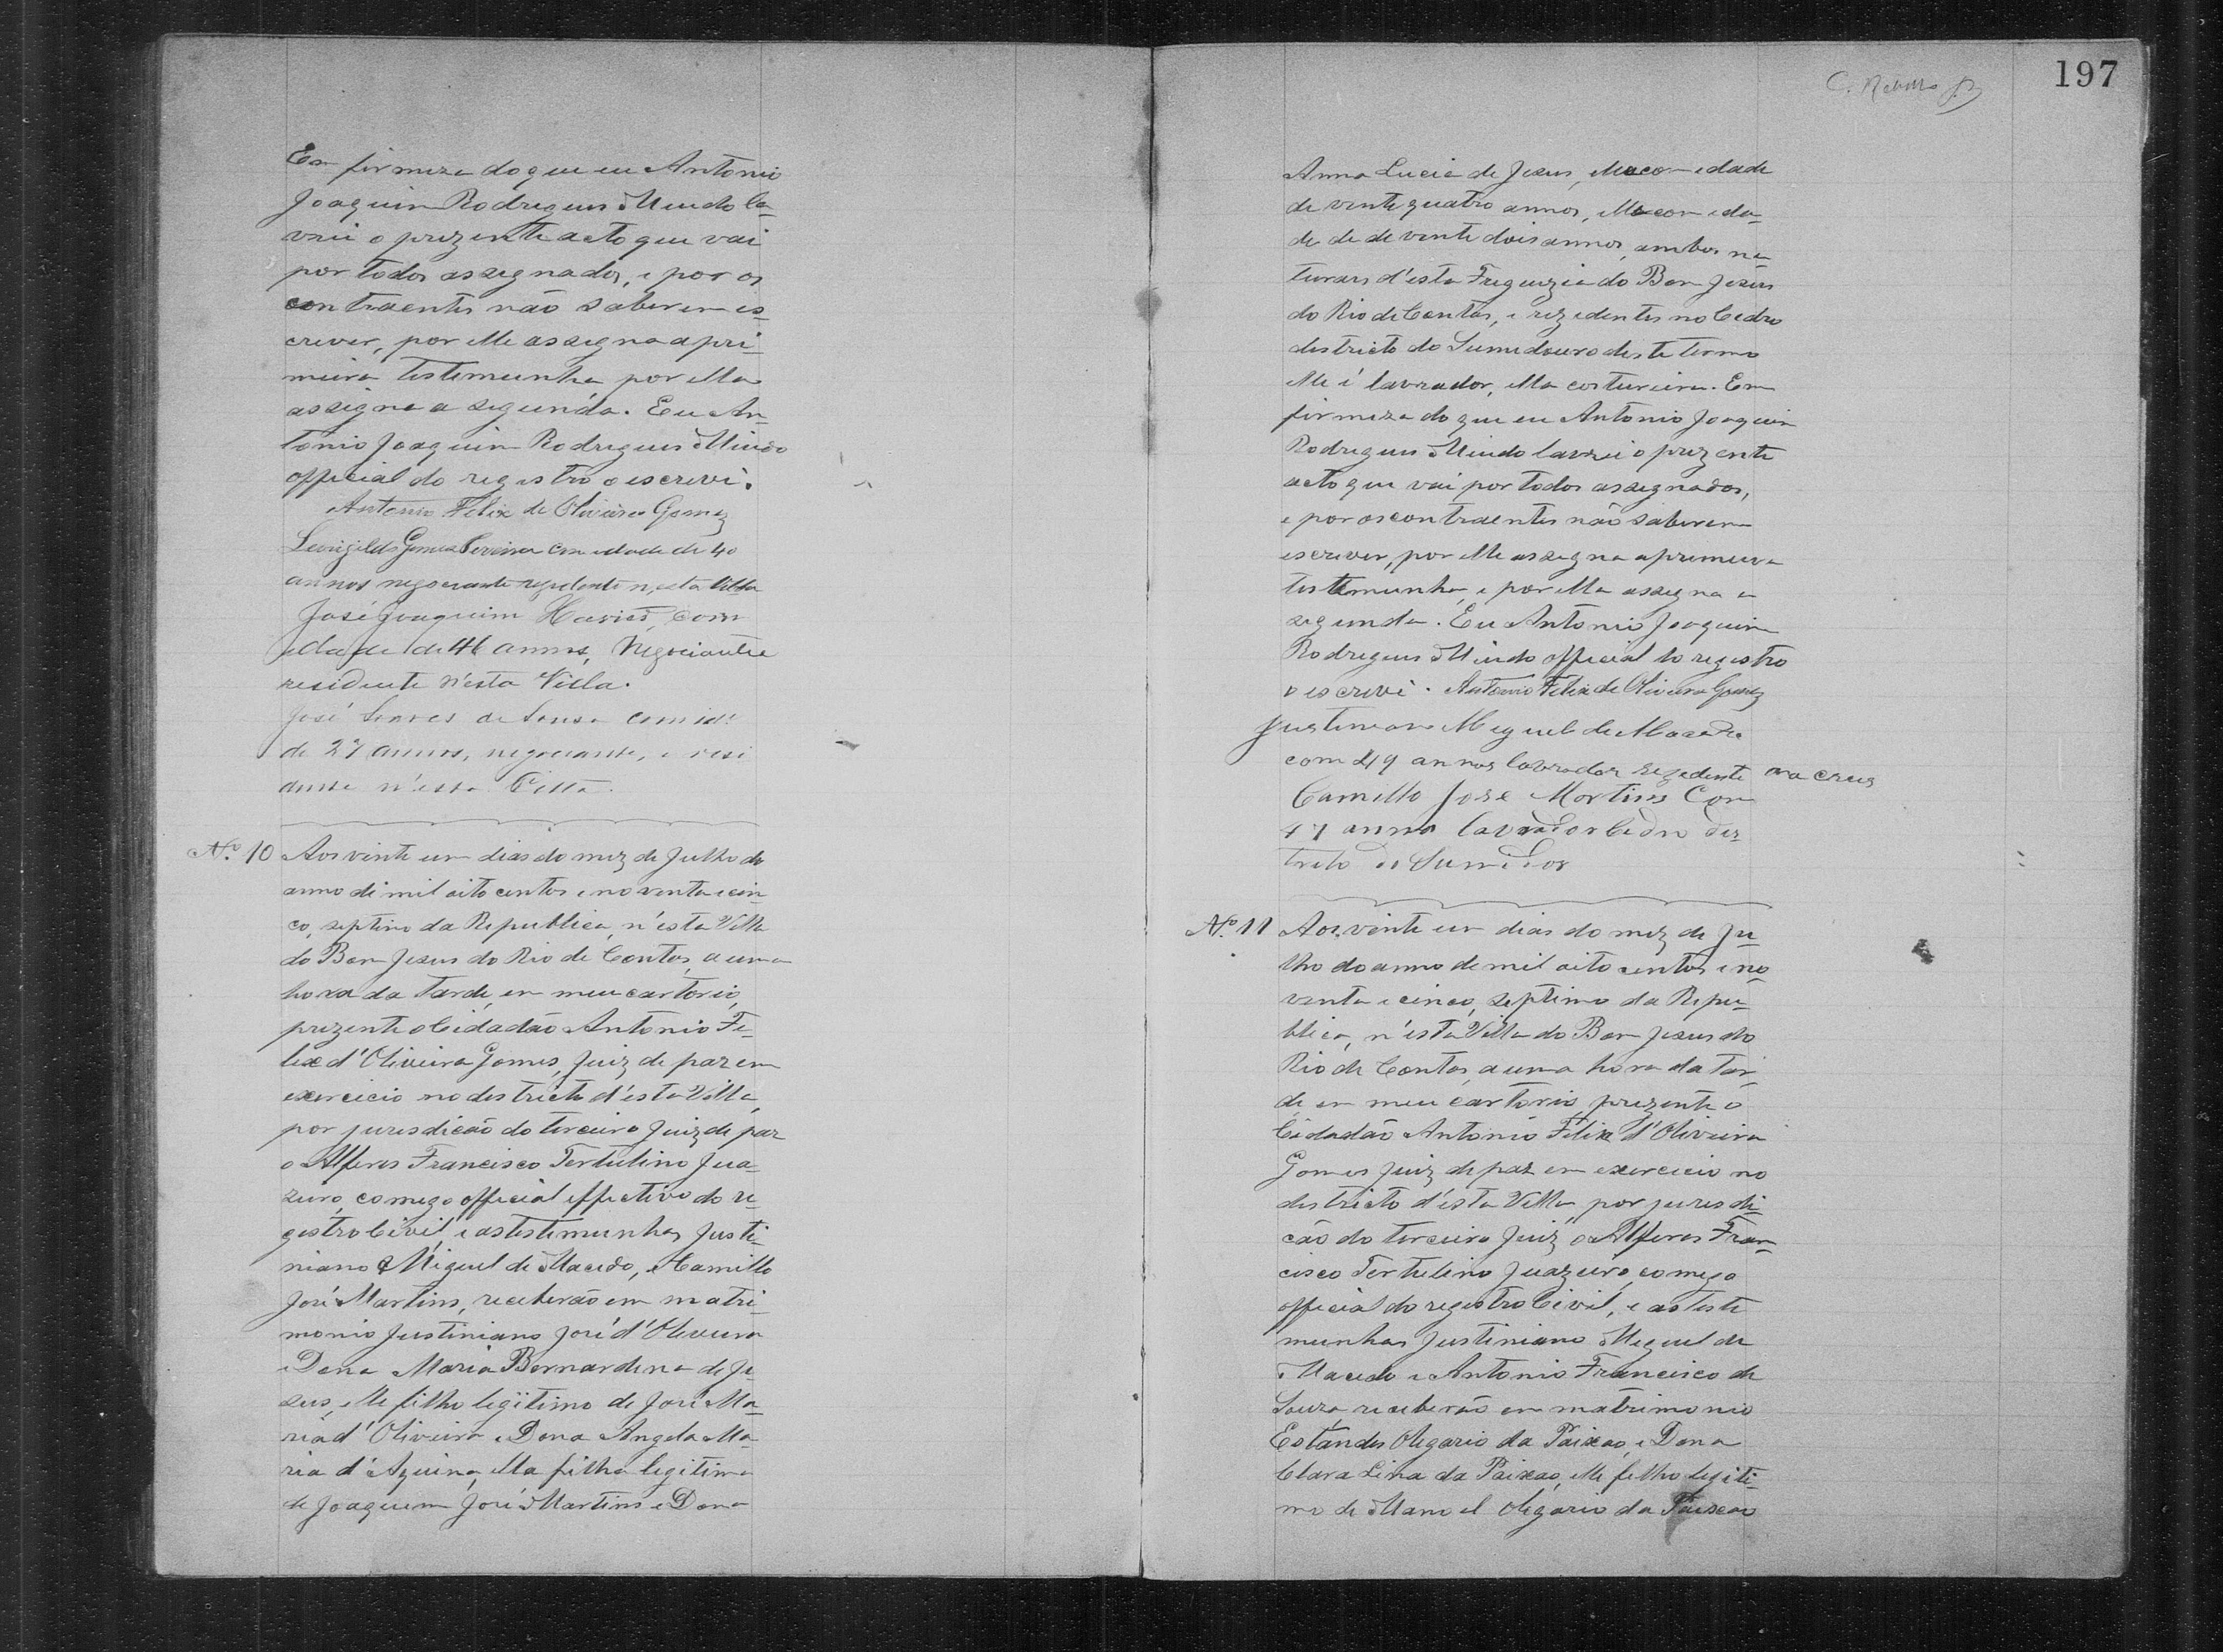 Em firmeza do que eu Antonio
Joaquim Rodrigues Mindo la-
vrei o prezente acto que vai
por todos assegnados, e por os
contraentes não saberem es-
crever, por elle assegna a pri-
meira testemunha por ella
assegna a segunda. Eu An-
tonio Joaquim Rodrigues Mindo
official do registro o escrevi.
Antonio Felix de Oliveira Gomez
Gomes Pereira com edade de 40
annos negociante rezidente n'esta Villa
José Joaquim com
edade de 46 annos, Negociante
residente n'esta Villa.
José Soares de Sousa com id.e
de 27 annos, negociante, e resi
dente n'esta Villa.
N.º 10 Aos vinte um dias do mez de Julho do
anno de mil oito centos e noventa e cin-
co, septimo da Republica, n'esta Villa
do Bom Jesus do Rio de Contas, a uma
hora da tarde, em meu cartorio,
prezente o Cidadão Antonio Fe-
lix d'Oliveira Gomes, Juiz de paz em
exercicio no destricto d'esta Villa,
por jurisdicão do terceiro Juiz de paz
o Alferes Francisco Tertulino Jua-
zeiro, comego official effectivo do re-
gistro Civil, e as testemunhas Justi-
niano Miguel de Macedo, e Camillo
José Martins, receberão em matri-
monio Justiniano José d'Oliveira
e Dona Maria Bernardina de Je-
sus, elle filho legitimo de José Ma-
ria d'Oliveira e Dona Angela Ma-
ria d'Aquina, ella filha legitima
de Joaquim José Martins e Dona
197
Anna Lucia de Jesus, elle com edade
de vinte quatro annos, ella com eda-
de de de vinte dois annos, ambos na
turaes d'esta Freguezia do Bom Jesus
do Rio de Contas, e rezedentes no Cedro
destricto do Sumedouro deste termo
elle é lavrador, ella costureira. Em
firmeza do que eu Antonio Joaquim
Rodrigues Mindo lavrei o prezente
acto que vai por todos assegnados,
e por os contraentes não saberem
escrever, por elle assegna a premeira
testemunha, e por ella assegna a
segunda. Eu Antonio Joaquim
Rodrigues Mindo official do registro
o escrevi. Antonio Felix de Oliveira Gomez
Justiniano Miguel de Macedo
com 49 annos lavrador rezedente na
Camillo José Martins Com
47 annos lavrador Cedro des-
N.º 11 Aos vinte um dias do mez de Ju-
lho do anno de mil oito centos e no-
venta e cinco, septimo da Repu-
blica, n'esta Villa do Bom Jesus do
Rio de Contas, a uma hora da tar-
de, em meu cartorio, prezente o
Cidadão Antonio Felix d'Oliveira
Gomes Juiz de paz em exercicio no
destricto d'esta Villa, por jurisdi-
cão do terceiro Juiz o Alferes Fran-
cisco Tertulino Juazeiro, comego
official do registro Civil, e as teste
munhas Justiniano Miguel de
Macedo e Antonio Francisco de
Souza, receberão em matrimonio
Olegario da Paixão, e Dona
Clara Lina da Paixão, elle filho legiti-
mo de Manoel Olegario da Paixão